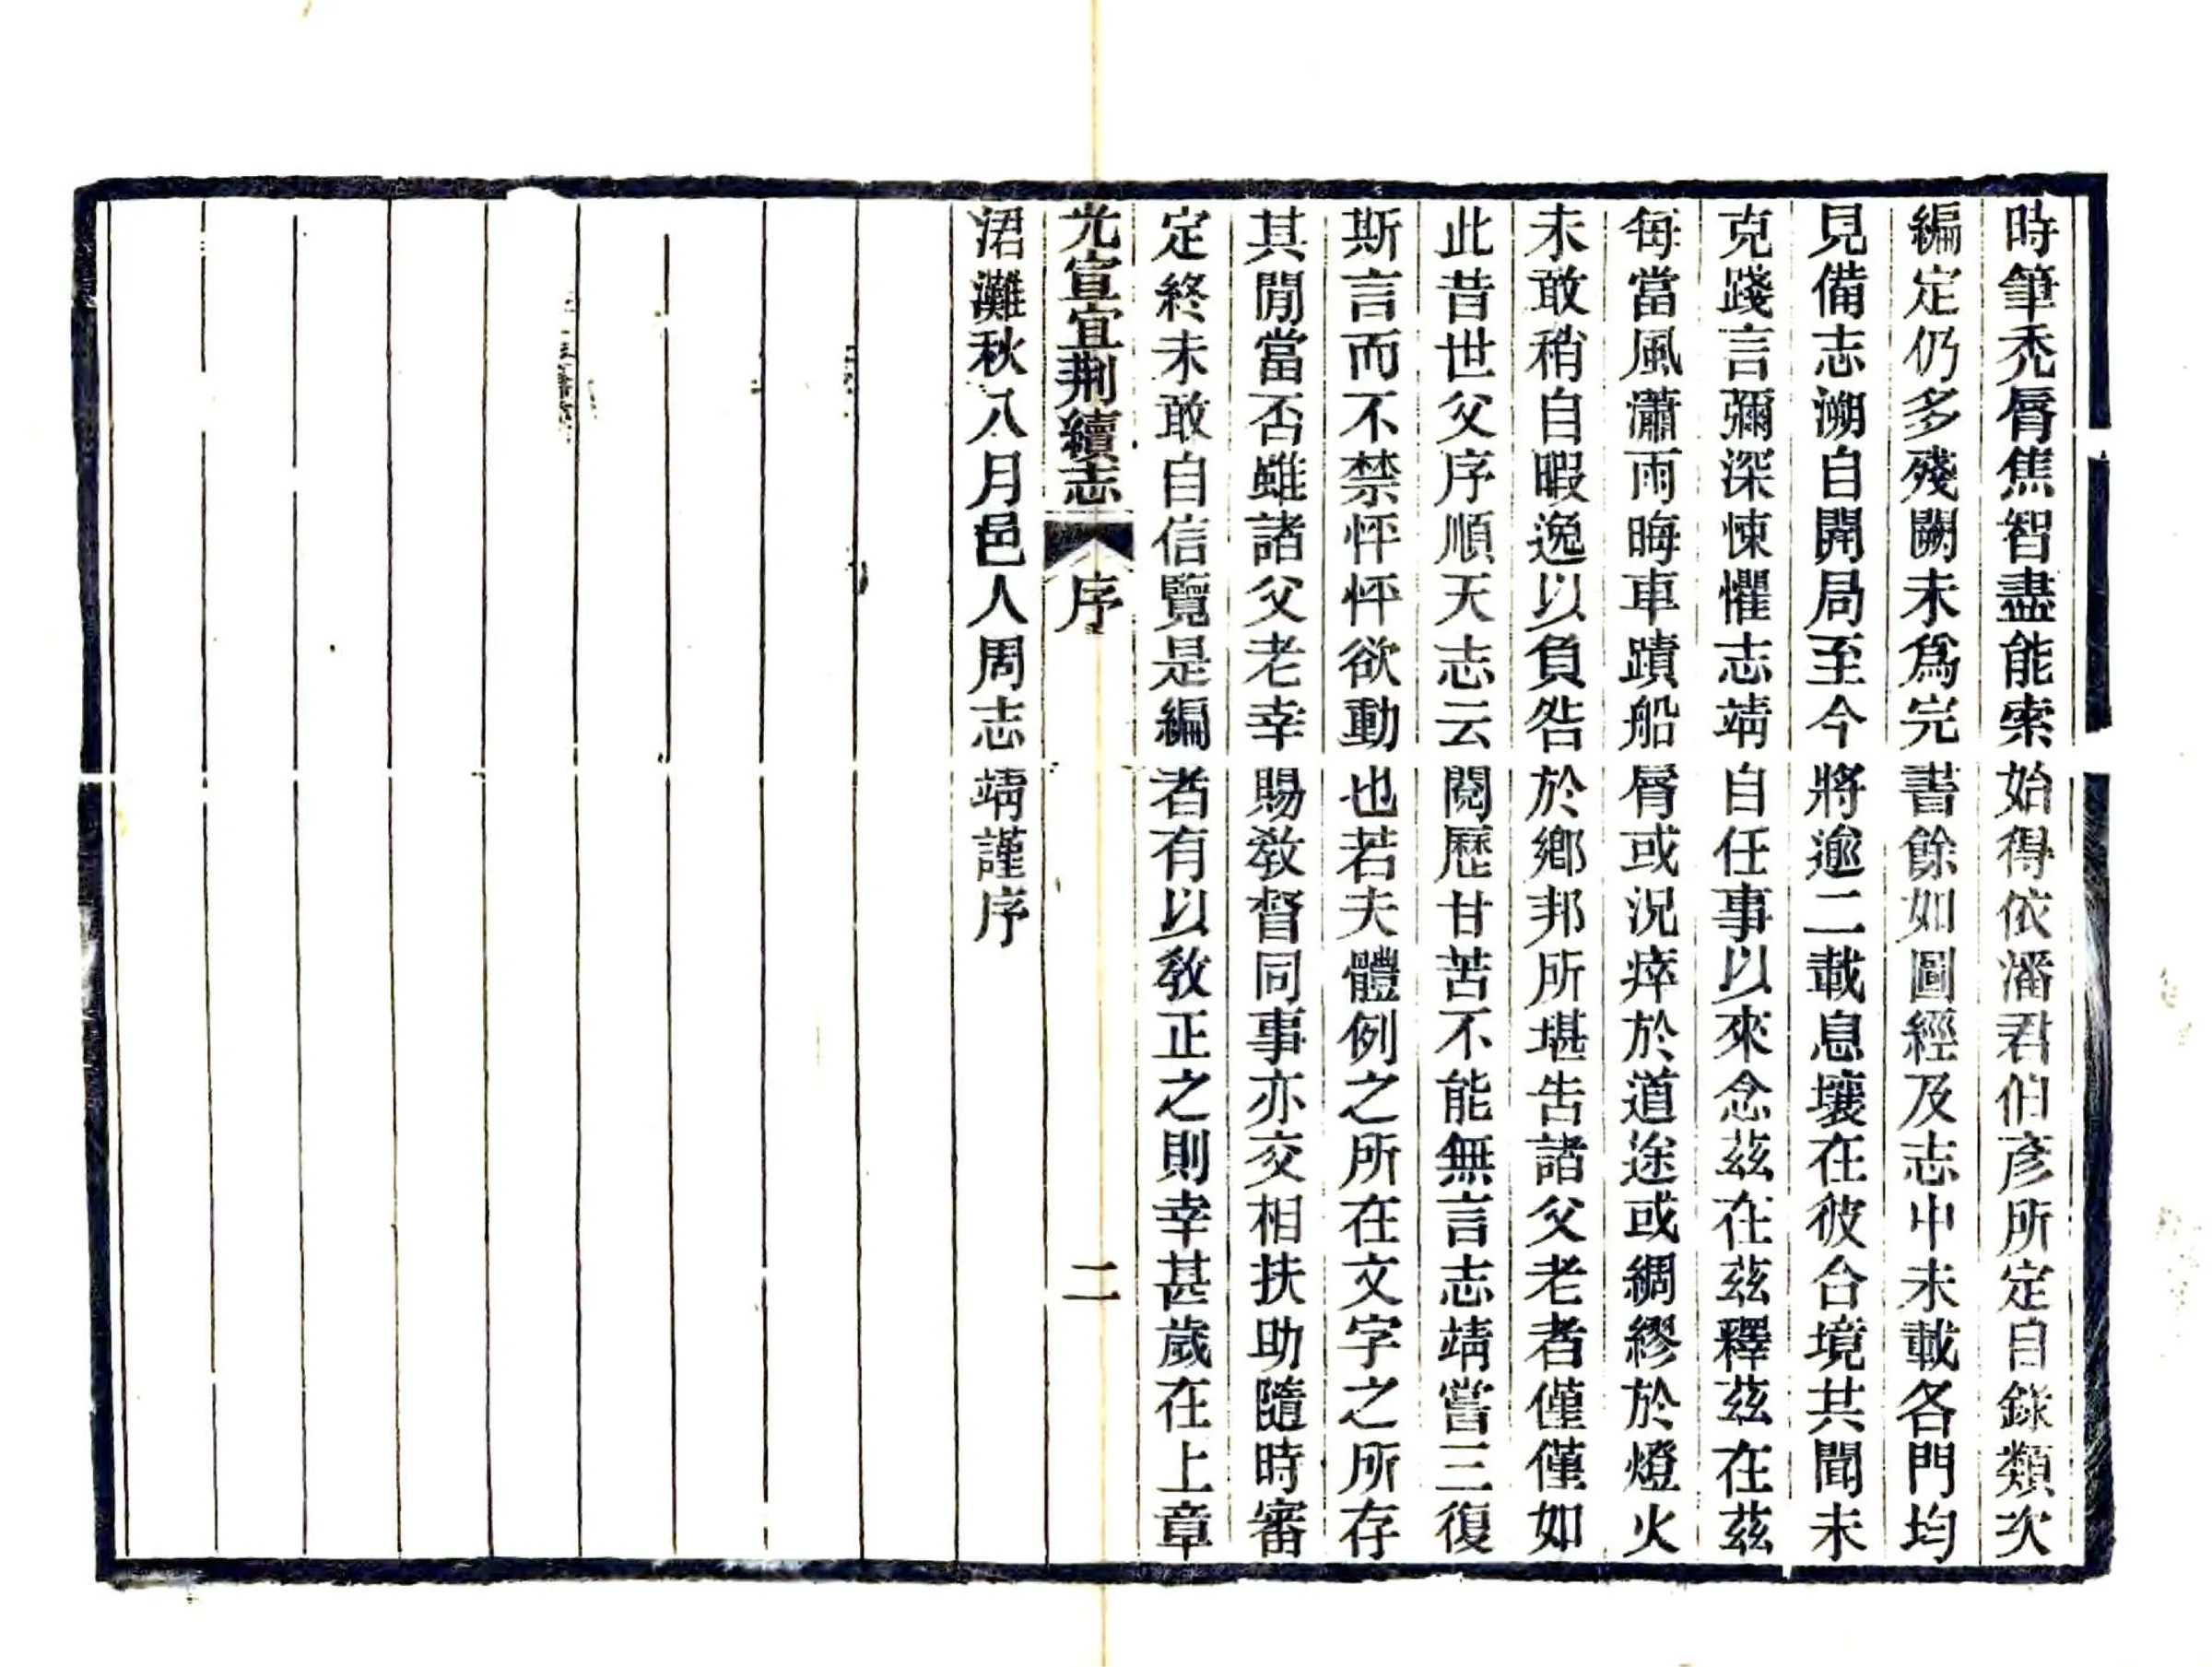 時筆禿脣焦智盡能索始得依潘君伯彥所定目錄類次
編定仍多殘闕未爲完書餘如圖經及志中未載各門均
見備志溯自開局至今將逾二載息壤在彼合境共聞未
克踐言彌深悚懼志靖自任事以來念茲在茲釋茲在茲
每當風瀟雨晦車蹟船脣或況瘁於道途或綢繆於燈火
未敢稍自暇逸以負咎於鄉邦所堪告諸父老者僅僅如
此昔世父序順天志云閱歷甘苦不能無言志靖嘗三復
斯言而不禁怦怦欲動也若夫體例之所在文字之所存
其閒當否雖諸父老幸賜敎督同事亦交相扶助隨時審
定終未敢自信覽是編者有以敎正之則幸甚歲在上章
光宣宜荆續志 序 二
涒灘秋八月邑人周志靖謹序